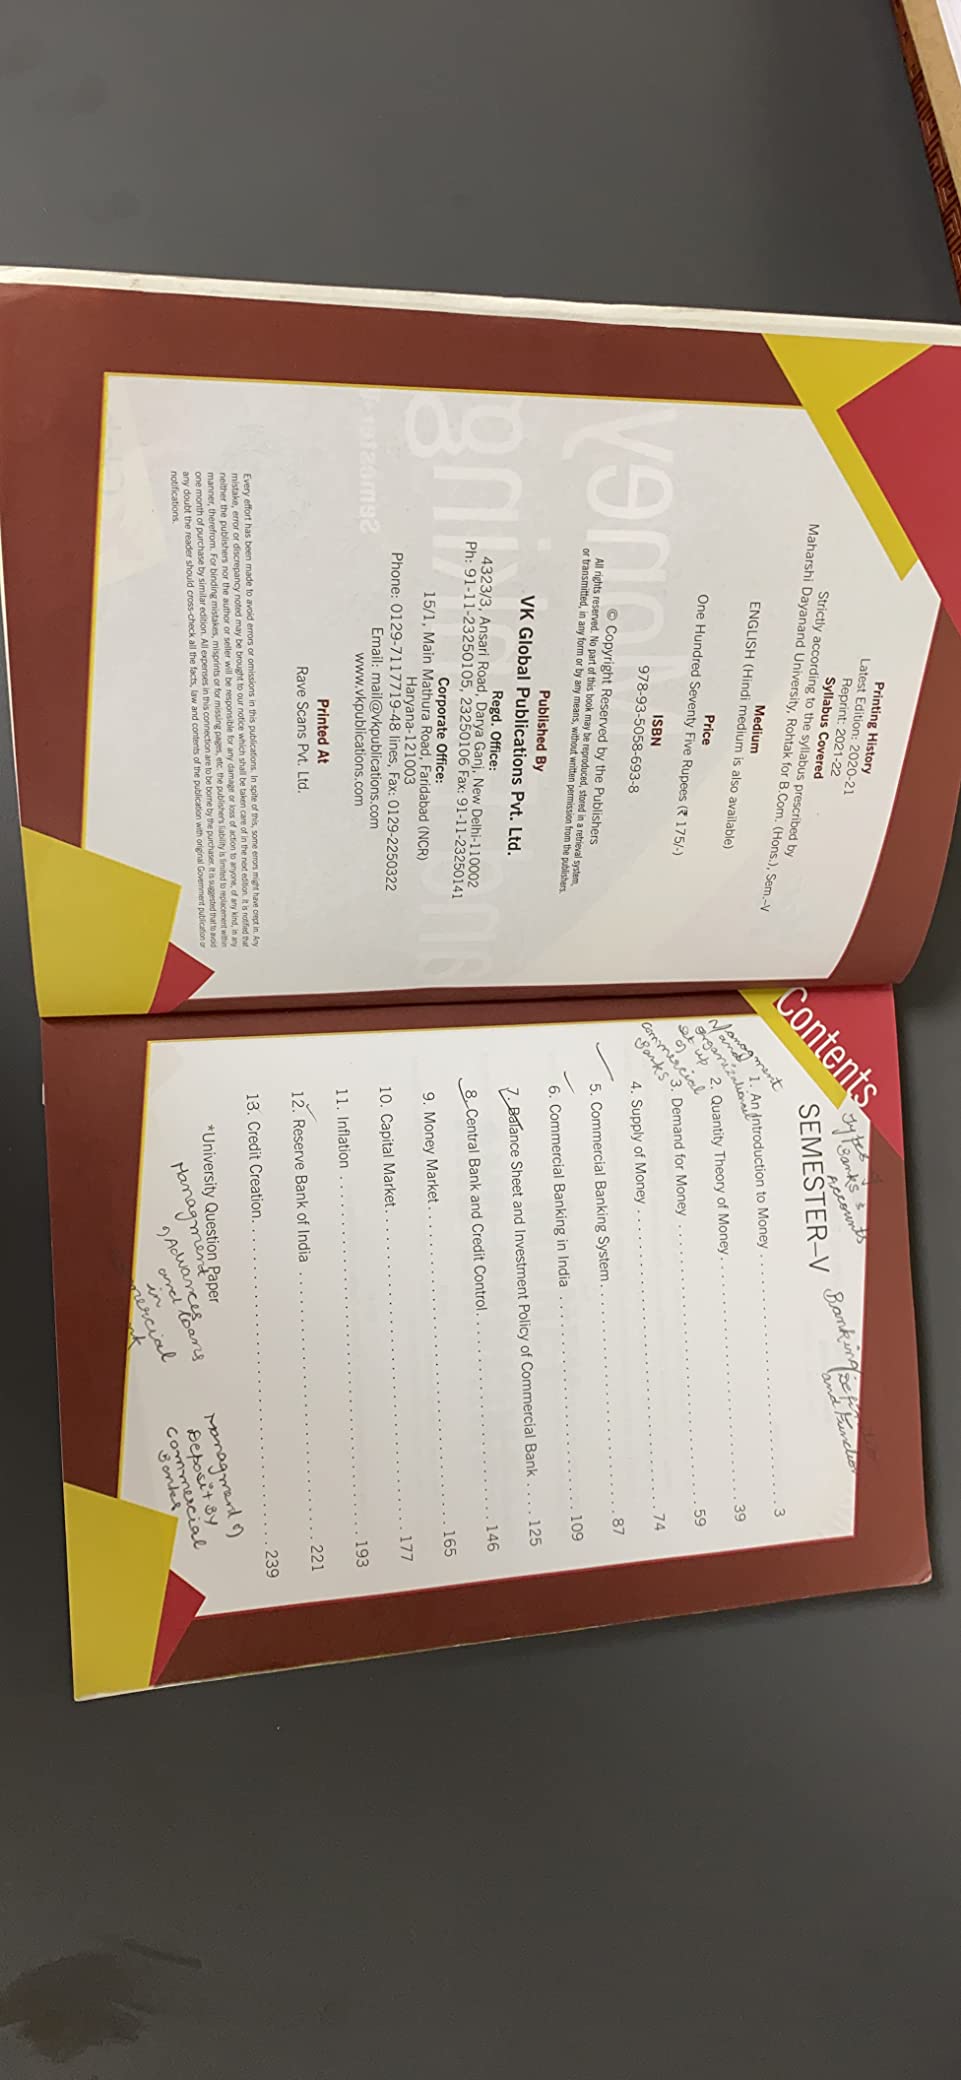 Printing History
Latest Edition: 2020-21
Reprint: 2021-22
Syllabus Covered
Strictly according to the syllabus prescribed by
Maharshi Dayanand University, Rohtak for B.Com. (Hons.), Sem.–V
Medium
ENGLISH (Hindi medium is also available)
Price
One Hundred Seventy Five Rupees (₹ 175/-)
ISBN
978-93-5058-693-8
© Copyright Reserved by the Publishers
All rights reserved. No part of this book may be reproduced, stored in a retrieval system,
or transmitted, in any form or by any means, without written permission from the publishers.
Published By
VK Global Publications Pvt. Ltd.
Regd. Office:
4323/3, Ansari Road, Darya Ganj, New Delhi-110002
Ph: 91-11-23250105, 23250106 Fax: 91-11-23250141
Corporate Office:
15/1, Main Mathura Road, Faridabad (NCR)
Haryana-121003
Phone: 0129-7117719-48 lines, Fax: 0129-2250322
Email: mail@vkpublications.com
www.vkpublications.com
Printed At
Rave Scans Pvt. Ltd.
Every effort has been made to avoid errors or omissions in this publications. In spite of this, some errors might have crept in. Any
mistake, error or discrepancy noted may be brought to our notice which shall be taken care of in the next edition. It is notified that
neither the publishers nor the author or seller will be responsible for any damage or loss of action to anyone, of any kind, in any
manner, therefrom. For binding mistakes, misprints or for missing pages, etc. the publisher's liability is limited to replacement within
one month of purchase by similar edition. All expenses in this connection are to be borne by the purchaser. It is suggested that to avoid
any doubt the reader should cross-check all the facts, law and contents of the publication with original Government publication or
notifications.
Contents
Types of
Banks & its
Accounts
Banking definition
and Function
SEMESTER–V
Managment
and
organizational
set up
of
commercial
Banks
1. An Introduction to Money . . . 3
2. Quantity Theory of Money . . . 39
3. Demand for Money . . . 59
4. Supply of Money . . . 74
5. Commercial Banking System . . . 87
6. Commercial Banking in India . . . 109
7. Balance Sheet and Investment Policy of Commercial Bank . . . 125
8. Central Bank and Credit Control . . . 146
9. Money Market . . . 165
10. Capital Market . . . 177
11. Inflation . . . 193
12. Reserve Bank of India . . . 221
13. Credit Creation . . . 239
*University Question Paper
Managment
of Advances
and loans
in
Managment of
Deposit By
commercial
Banks